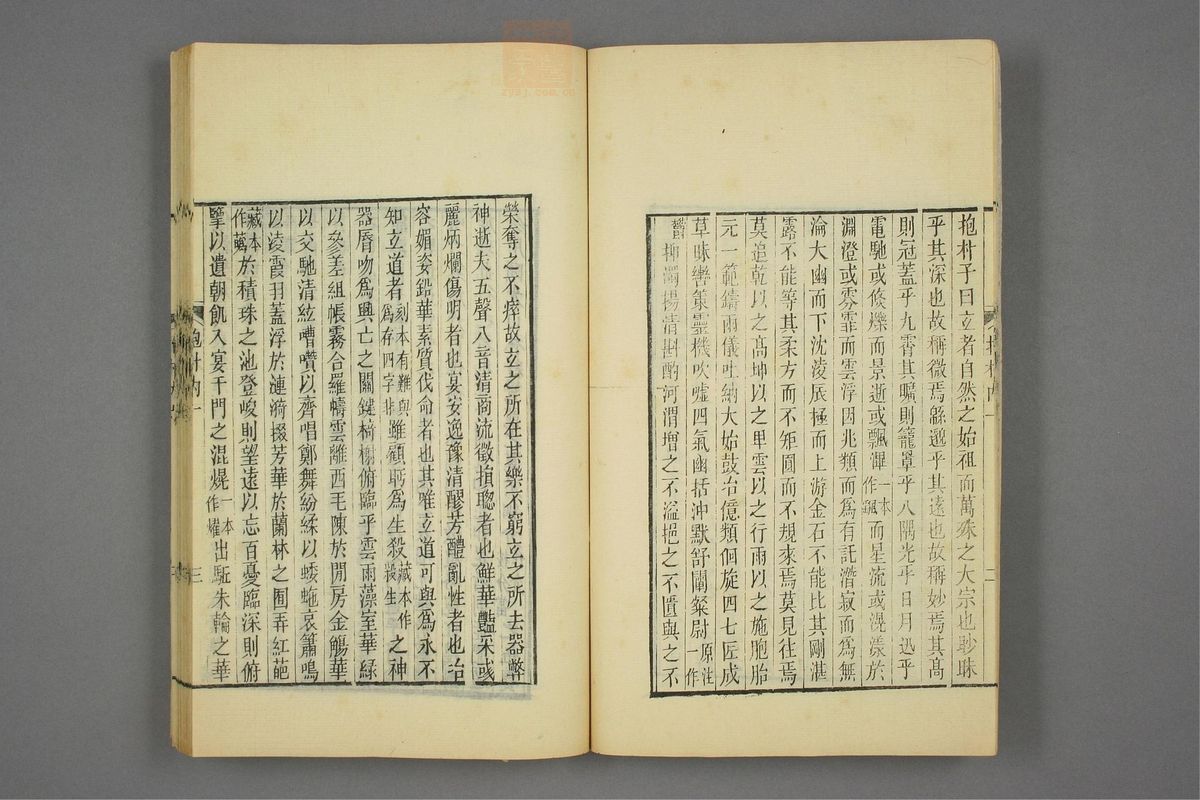 抱朴子曰立者自然之始祖而萬殊之大宗也眇眛
乎其深也故稱微焉緜邈乎其遠也故稱妙焉其高
則冠蓋乎九霄其曠則籠罩乎八隅光乎日月迅乎
電馳或倏爍而景逝或飄滭一本作颻而星流或滉漾於
淵澄或雰霏而雲浮因兆類而爲有託潛寂而爲無
淪大幽而下沈淩辰極而上游金石不能比其剛湛
露不能等其柔方而不矩圓而不規來焉莫見往焉
莫追乾以之高坤以之卑雲以之行雨以之施胞胎
元一範鑄兩儀吐納大始鼓冶億類佪旋四七匠成
草昧轡策靈機吹噓四氣幽括沖默舒闡粲尉原注一作
鬱抑濁揚清斟酌河渭增之不溢挹之不匱與之不
榮奪之不瘁故立之所在其樂不窮立之所去器弊
神逝夫五聲八音清商流徵損聰者也鮮華豔采或
麗炳爛傷明者也宴安逸豫清醪芳醴亂性者也冶
容媚姿鉛華素質伐命者也其唯立道可與爲永不
知立道者刻本有難與爲存四字非雖顧眄爲生殺藏本作殺生之神
器脣吻爲興亡之關鍵椅榭俯臨乎雲雨藻室華綠
以參差組帳霧合羅幬雲離西毛陳於閒房金觴華
以交馳清絃嘈囋以齊唱鄭舞紛緌以蜲蛇哀簫鳴
以淩霞羽蓋浮於漣漪掇芳華於蘭林之囿弄紅葩
藏本作蘤於積珠之池登峻則望遠以忘百憂臨深則俯
擥以遺朝飢入宴千門之混熀一本作燿出駈朱輪之華
抱朴内一
三
二
zysj.com.cn